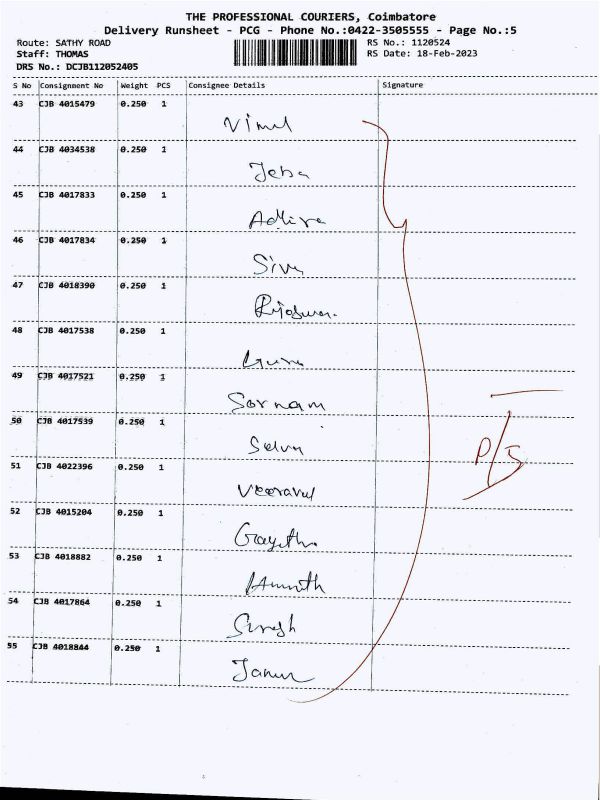 THE PROFESSIONAL COURIERS, Coimbatore
Delivery Runsheet - PCG - Phone No.:0422-3505555 - Page No.:5
Route: SATHY ROAD
Staff: THOMAS
DRS No.: DCJB112052405
RS No.: 1120524
RS Date: 18-Feb-2023
S No Consignment No Weight PCS Consignee Details Signature
43 CJB 4015479 0.250 1
Vimal
44 CJB 4034538 0.250 1
Jeba
45 CJB 4017833 0.250 1
46 CJB 4017834 0.250 1
Siva
47 CJB 4018390 0.250 1
48 CJB 4017538 0.250 1
Guru
49 CJB 4017521 0.250 1
Sornam
50 CJB 4017539 0.250 1
Selva
51 CJB 4022396 0.250 1
Veeravel
52 CJB 4015204 0.250 1
53 CJB 4018882 0.250 1
54 CJB 4017864 0.250 1
Suresh
55 CJB 4018844 0.250 1